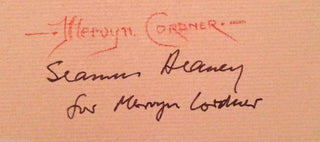 Mervyn CORDNER.
Seamus Heaney
for Mervyn Cordner